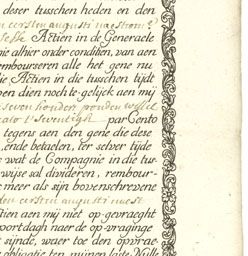 deser tusschen heden en den
eersten augusti naestcom
Actien in de Generaele
nie alhier onder conditien, van aen
rembourseren alle het gene nu
ie Actien in die tusschen tijdt
pen dien noch te gelijck aen mij
seven hondert ponden
par Cento
tegens aen den gene die dese
, ende betaelen, ter selver tijde
wat de Compagnie in die tus-
wijse sal divideren, rembour-
meer als sijn bovenschrevene
den eersten augusti naest
tien aen mij niet op-gevraeght
poort dagh naer de op-vraginge
sijnde, waer toe den opvrae-
obligatie ten mijnen laste Nulle